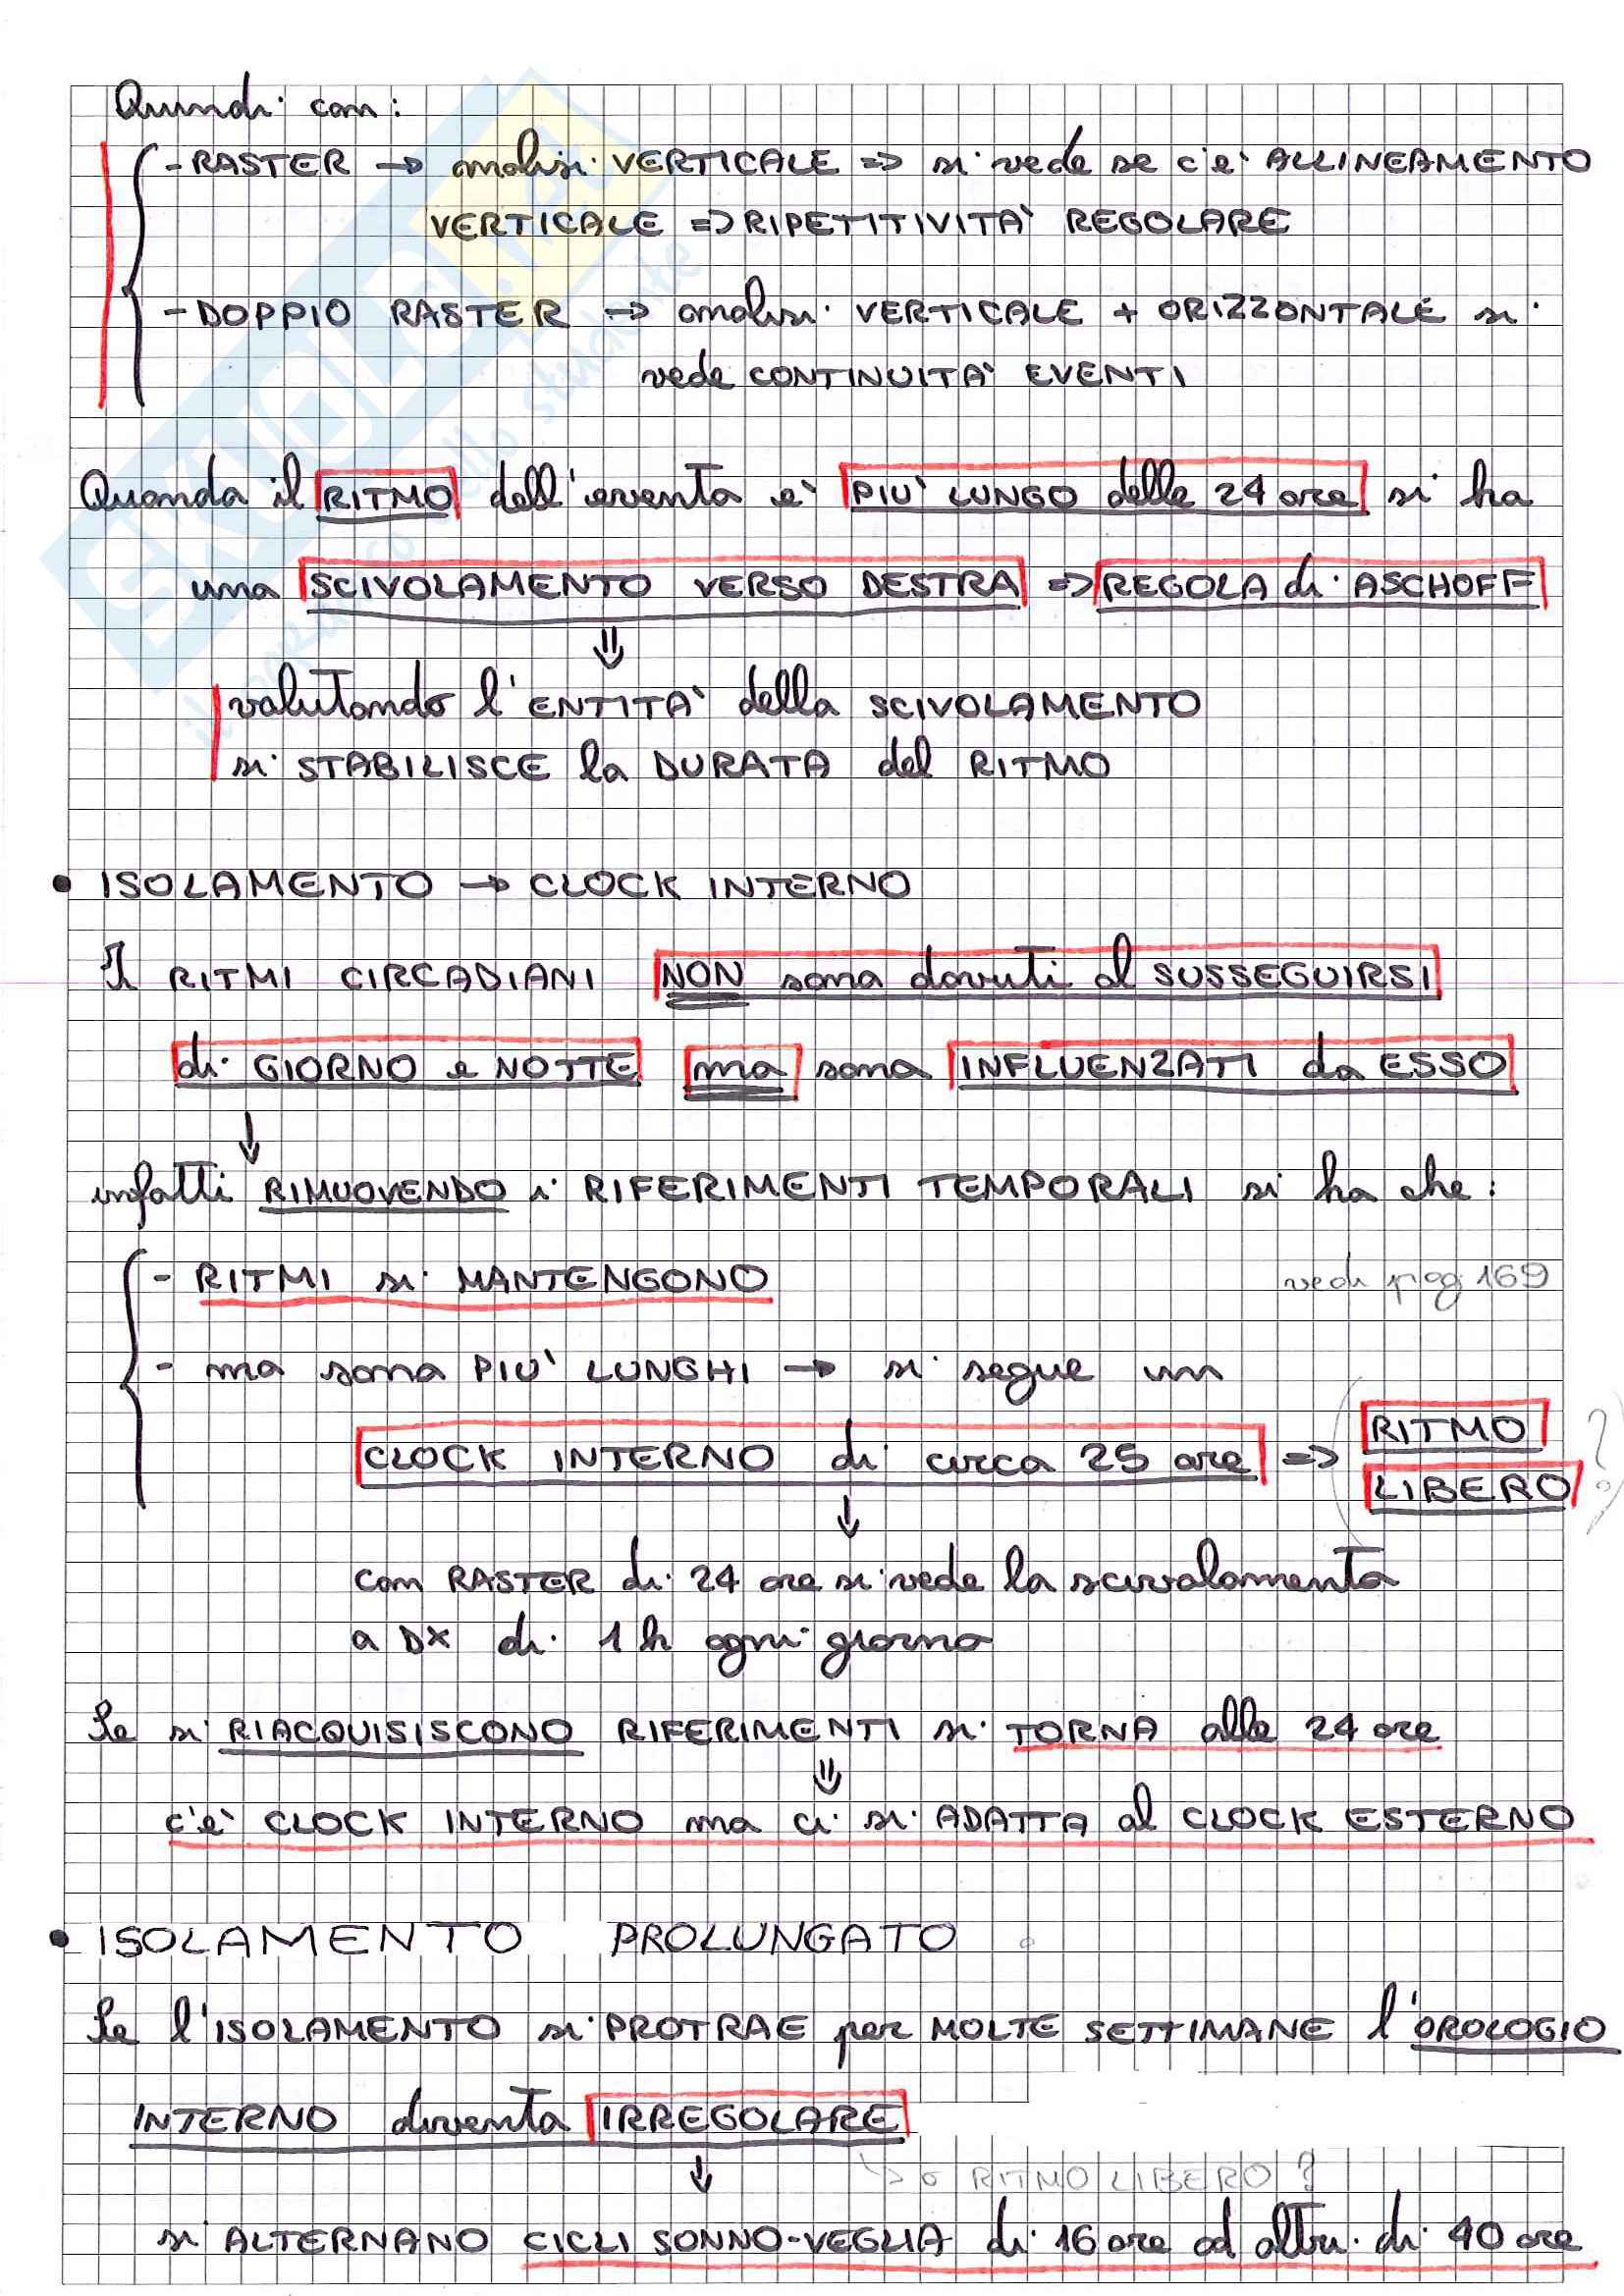 Quindi con:
- RASTER → analisi VERTICALE => si vede se c'è ALLINEAMENTO
VERTICALE => RIPETITIVITA' REGOLARE
- DOPPIO RASTER → analisi VERTICALE + ORIZZONTALE si
vede CONTINUITA' EVENTI
Quando il RITMO dell'evento è PIU' LUNGO delle 24 ore si ha
uno SCIVOLAMENTO VERSO DESTRA => REGOLA di ASCHOFF
⇓
valutando l'ENTITA' dello SCIVOLAMENTO
si STABILISCE la DURATA del RITMO
• ISOLAMENTO → CLOCK INTERNO
I RITMI CIRCADIANI NON sono dovuti al SUSSEGUIRSI
di GIORNO e NOTTE ma sono INFLUENZATI da ESSO
↓
infatti RIMUOVENDO i RIFERIMENTI TEMPORALI si ha che:
- RITMI si MANTENGONO vedi pag 169
- ma sono PIU' LUNGHI → si segue un
CLOCK INTERNO di circa 25 ore => (RITMO
LIBERO ?)
↓
con RASTER di 24 ore si vede lo scivolamento
a DX di 1 h ogni giorno
Se si RIACQUISISCONO RIFERIMENTI si TORNA alle 24 ore
⇓
c'è CLOCK INTERNO ma ci si ADATTA al CLOCK ESTERNO
• ISOLAMENTO PROLUNGATO
Se l'ISOLAMENTO si PROTRAE per MOLTE SETTIMANE l'OROLOGIO
INTERNO diventa IRREGOLARE
↓ ↳ o RITMO LIBERO ?
si ALTERNANO CICLI SONNO-VEGLIA di 16 ore ad altri di 40 ore
SKUOLA.NET
il paradiso dello studente